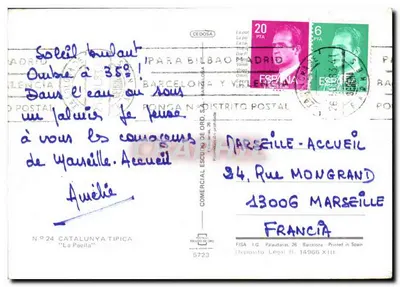 CEDOSA
20
PTA
6
PTA
ESPAÑA
ESPAÑA
PARA BILBAO MADRID
BARCELONA Y
PONGA DISTRITO POSTAL
POSTAL
Soleil brulant
Ombre à 35° !
Dans l'eau ou sous
un palmier je pense
à vous les
de Marseille-Accueil
Amélie
MARSEILLE-ACCUEIL
24, RUE MONGRAND
13006 MARSEILLE
FRANCIA
COMERCIAL ESCUDO DE ORO, S.A.
N.º 24 CATALUNYA TIPICA
"La Pavita"
5723
FISA I.G. Palaudarias, 26 Barcelona Printed in Spain